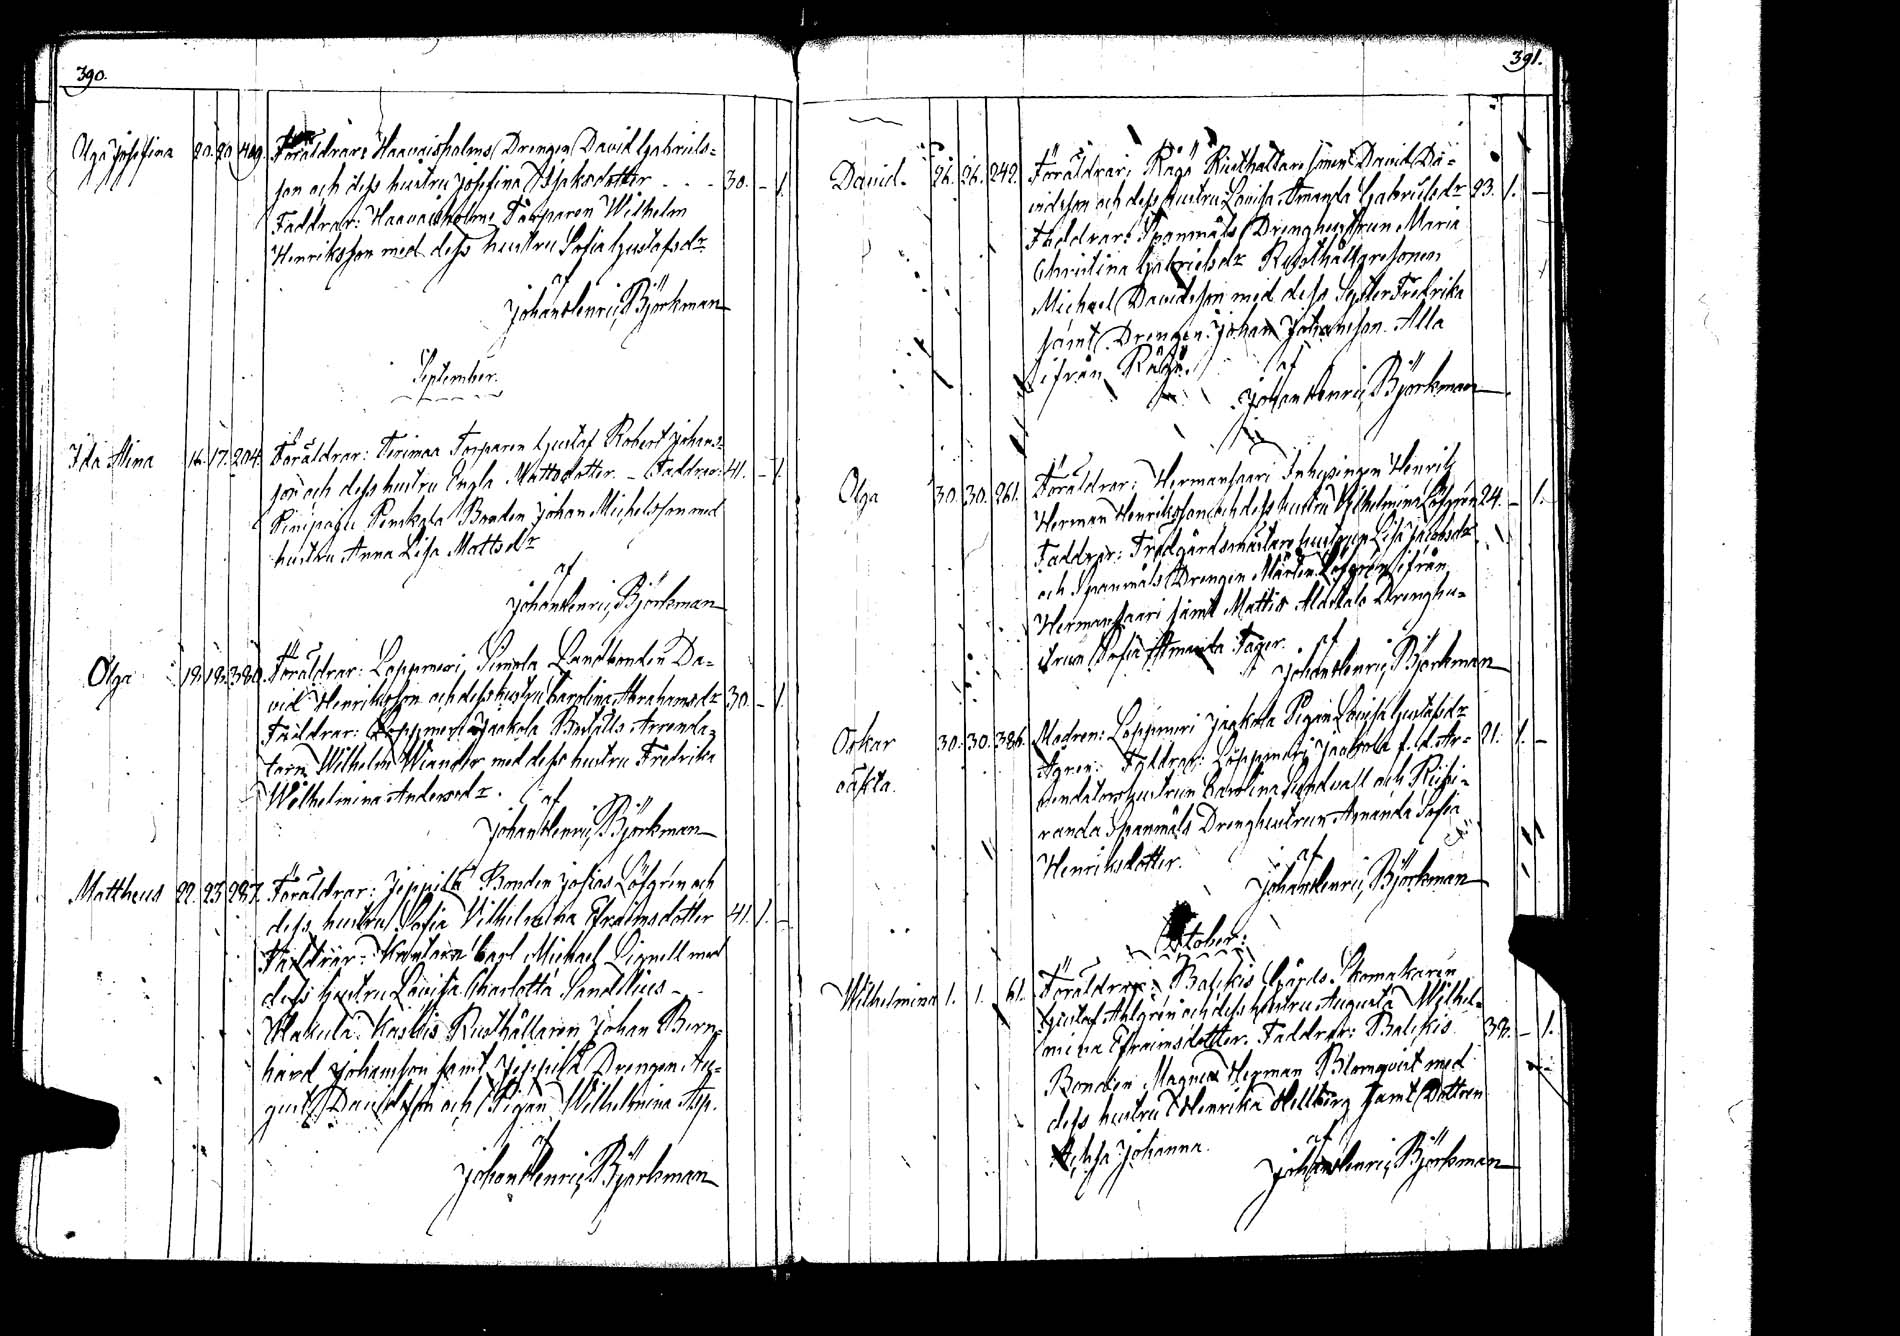 390.
Olga Josefina 20. 20. 409. Föräldrar: Haavaisholms Drengen David Gabriels=
son och dess hustru Josefina Isaksdotter - - - 30. - 1.
Faddrar: Haavaisholms Torparen Wilhelm
Henriksson med dess hustru Sofia Gustafsdr
af
Johan Henric Björkman
September.
Ida Alina 16. 17. 204. Föräldrar: Torparen Gustaf Robert Johans=
son och dess hustru Engla Mattsdotter. - Faddrar: 41. - 1.
Penipaju Bonden Johan Michelsson med
hustru Anna Lisa Mattsdr
af
Johan Henric Björkman
Olga 18. 18. 380. Föräldrar: Loppmeri, Simola Landbonden Da=
vid Henriksson och dess hustru Carolina Abrahamsdr 30. - 1.
Faddrar: Loppmeri Jaakola Boställs Arrenda=
torn Wilhelm Wiander med dess hustru Fredrika
Wilhelmina Andersdr.
af
Johan Henric Björkman
Mattheus 22. 23. 287. Föräldrar: Jeppilä Bonden Josias Löfgrén och
dess hustru Sofia Vilhelmina Efraimsdotter 41. 1. -
Faddrar: Kantorn Carl Michael Lignell med
dess hustru Lovisa Charlotta Sandelius -
Wakula Kaskis Rusthållaren Johan Bern=
hard Johansson samt Jeppilä Drengen Au=
gust Davidsson och Pigan Wilhelmina Asp.
af
Johan Henric Björkman
391.
David. 26. 26. 242. Föräldrar: Rågö Rusthållare sonen David Da=
vidsson och dess hustru Lovisa Amanda Gabrielsdr 23. 1. -
Faddrar: Spanmåls Drenghustrun Maria
Christina Gabrielsdr Rusthållaresonen
Michael Davidsson med dess Syster Fredrika
samt Drengen Johan Johansson. Alla
ifrån Rågö.
af
Johan Henric Björkman
Olga 30. 30. 261. Föräldrar: Hermansaari Inhysingen Henrik
Herman Henriksson och dess hustru Vilhelmina Löfgrén 24. - 1.
Faddrar: Trädgårdsmästare hustrun Lisa Jacobsdr
och Spanmåls Drengen Mårten Löfgrén ifrån
Hermansaari samt Mattis Aldstalo Drenghu=
strun Sofia Amanda Fager.
af
Johan Henric Björkman
Oskar 30. 30. 386. Modren: Loppmeri Jaakola Pigan Lovisa Gustafsdr 21. 1. -
oäkta. Ågren. Faddrar: Loppmeri Jaakola f. d. Ar=
rendators hustrun Carolina Sandvall och Riihi=
randa Spanmåls Drenghustrun Amanda Sofia
Henriksdotter.
af
Johan Henric Björkman
October:
Wilhelmina 1. 1. 61. Föräldrar: Balckis Gårds Skomakaren
Gustaf Ahlgrén och dess hustru Augusta Wilhel=
mina Efraimsdotter. Faddrar: Balckis 38. - 1.
Bonden Magnus Herman Blomqvist med
dess hustru Henrika Hellberg samt Dottren
Johanna.
af
Johan Henric Björkman